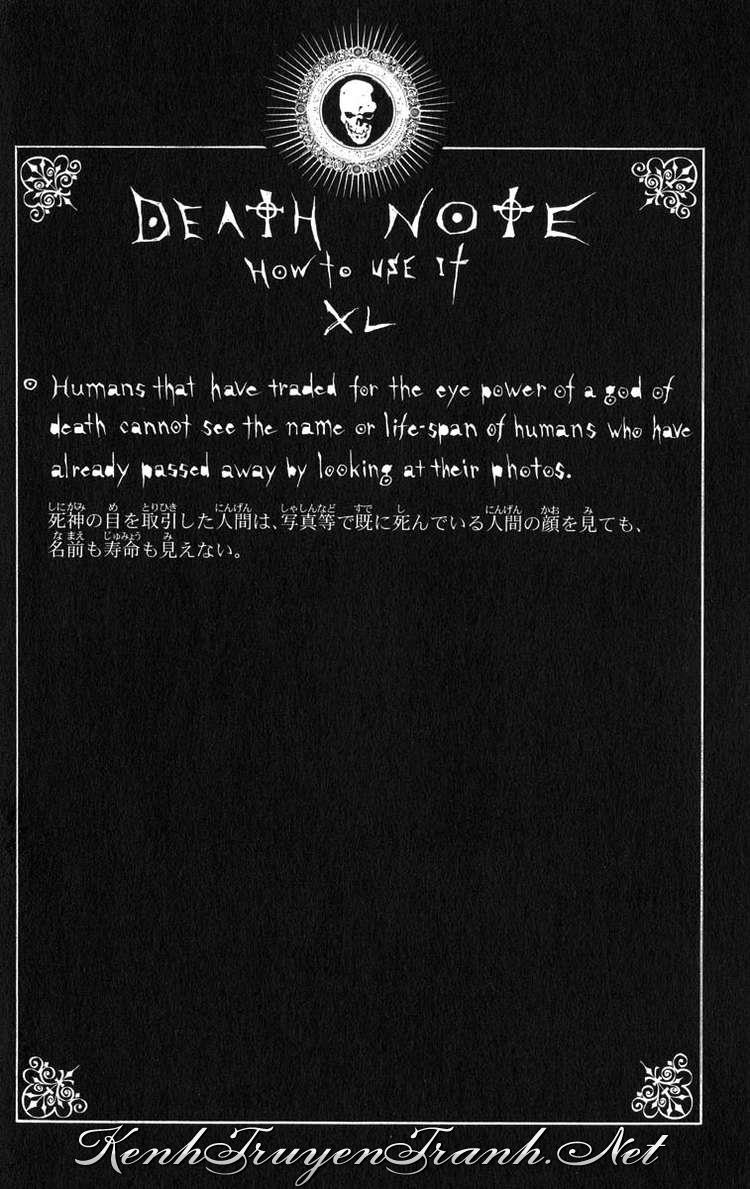 DEATH NOTE
HOW to USE It
XL
Humans that have traded for the eye power of a god of
death cannot see the name or life-span of humans who have
already passed away by looking at their photos.
死神の目を取引した人間は、写真等で既に死んでいる人間の顔を見ても、
名前も寿命も見えない。
KenhTruyenTranh.Net